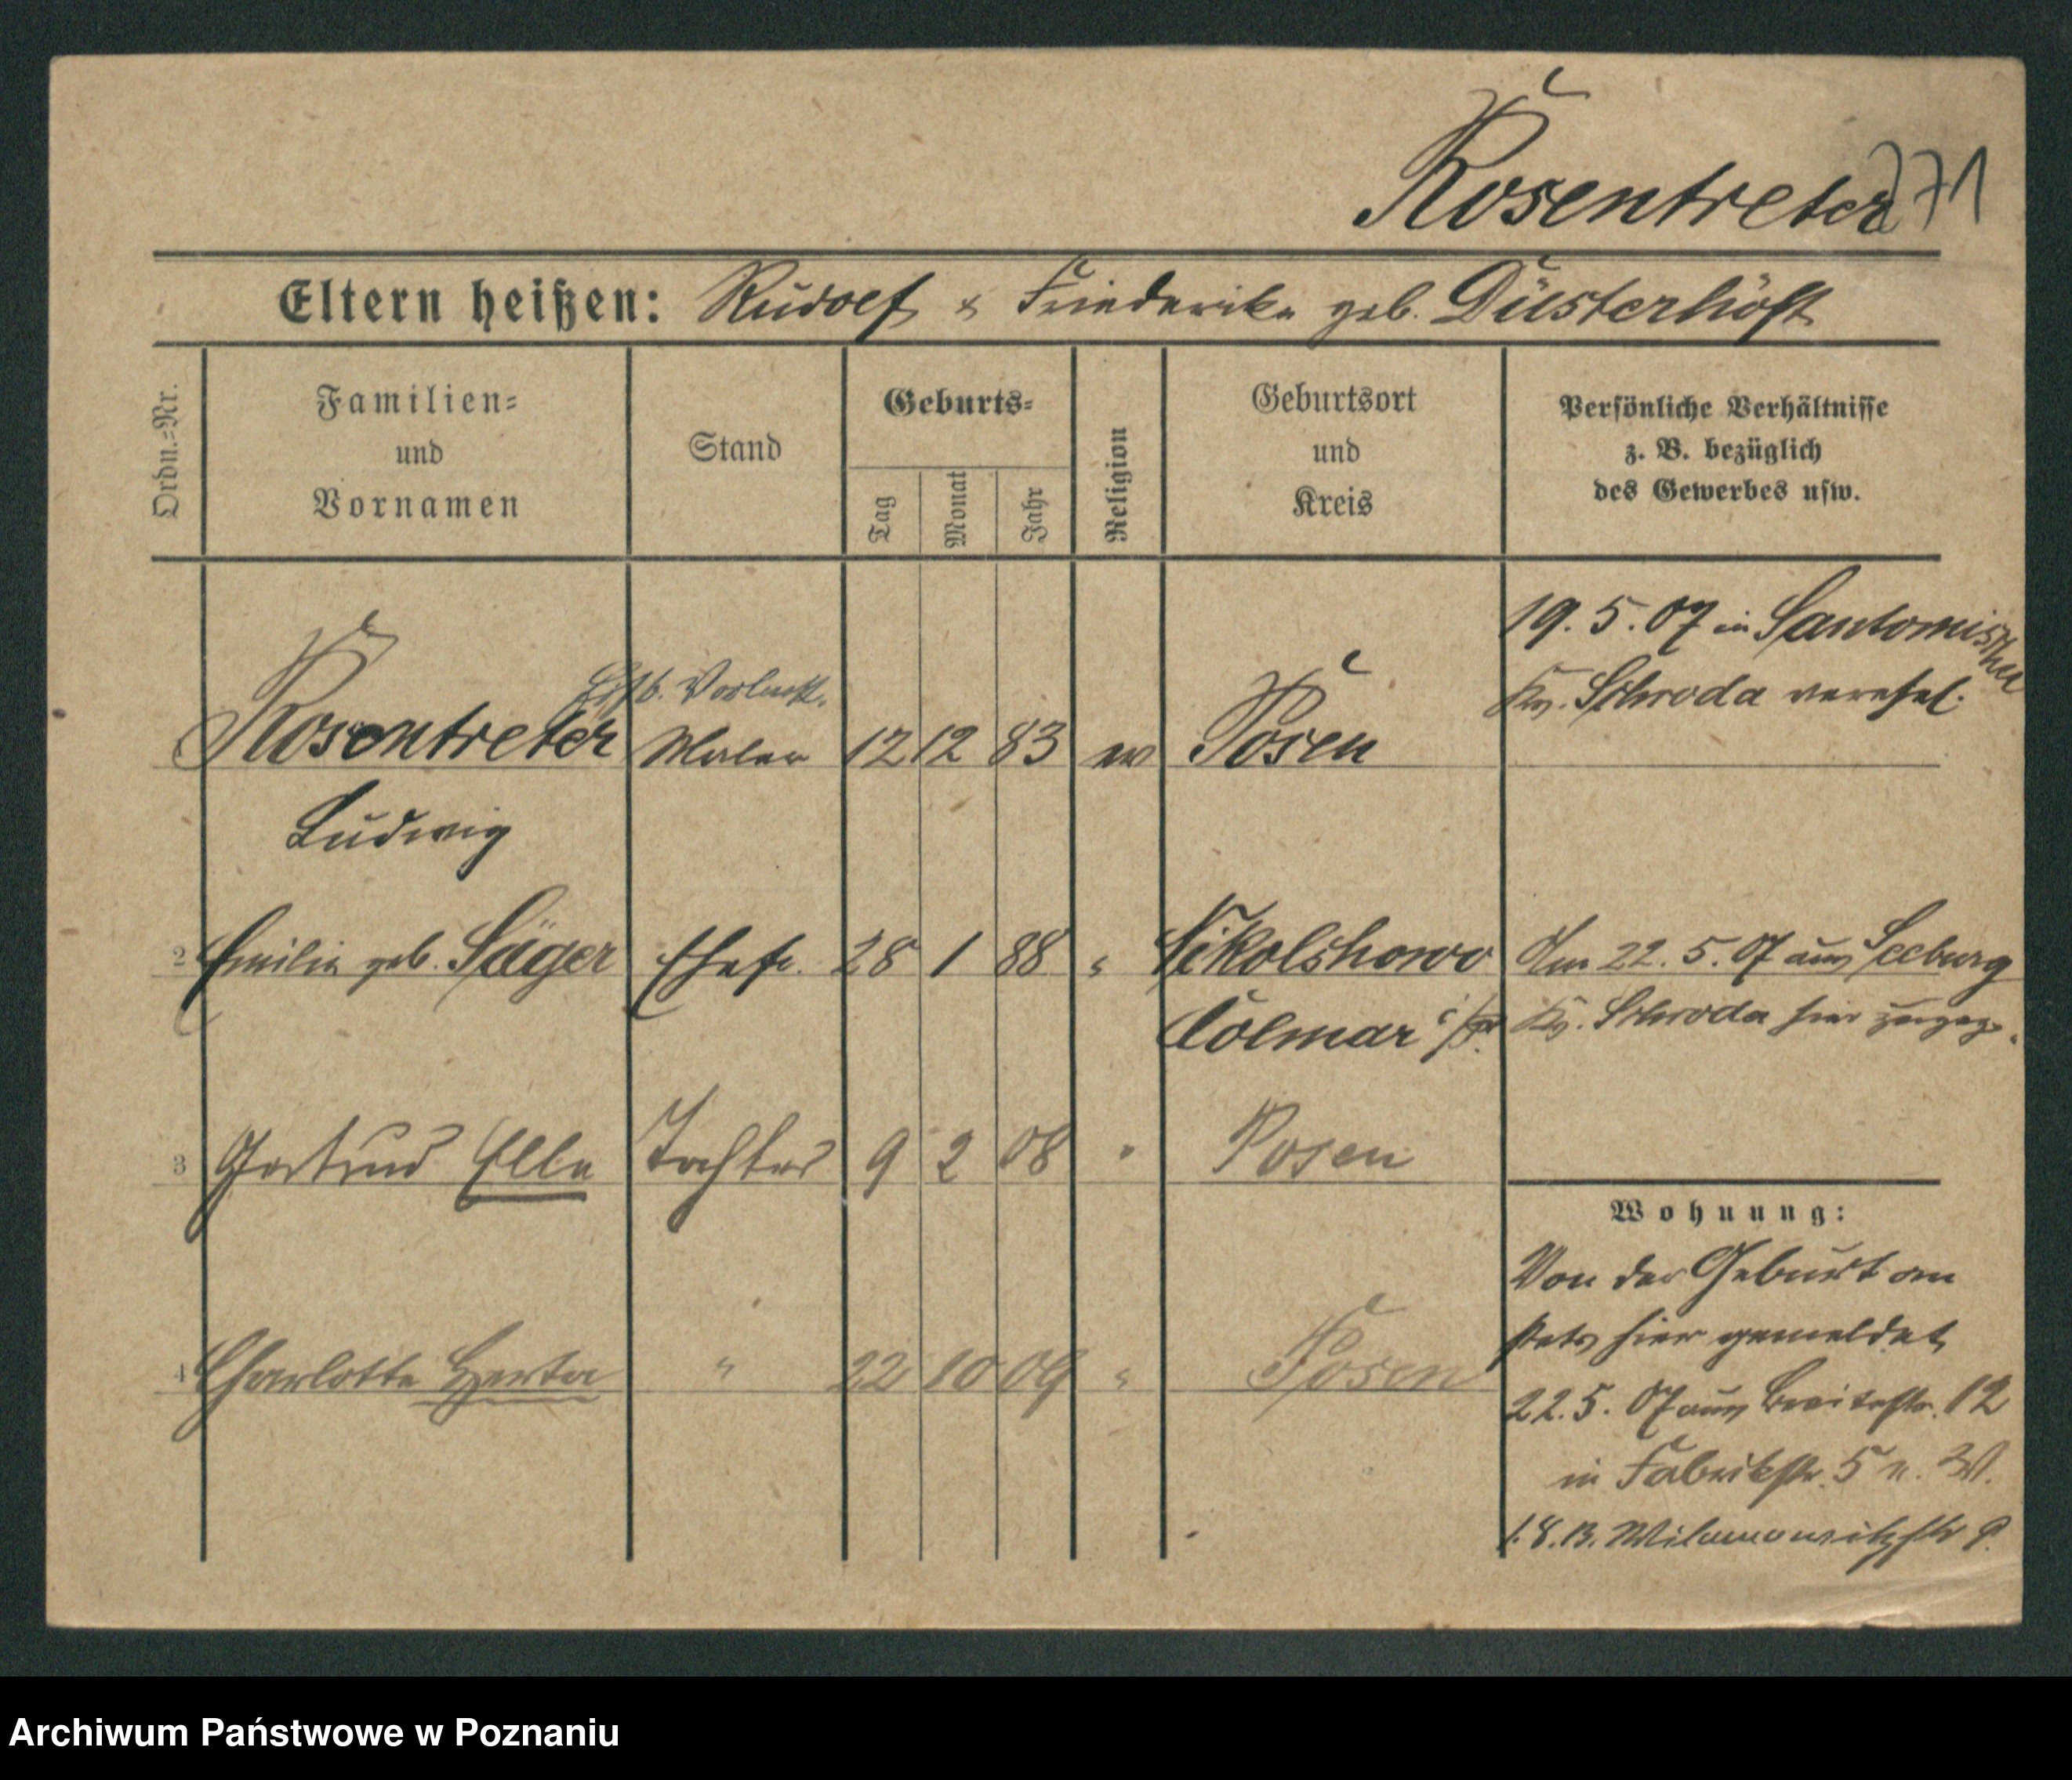 Rosentreter
771
Eltern heißen: Rudolf & Friederike geb. Düsterhöft
Ordn.=Nr.
Familien=
und
Vornamen
Stand
Geburts=
Tag
Monat
Jahr
Religion
Geburtsort
und
Kreis
Persönliche Verhältnisse
z. B. bezüglich
des Gewerbes usw.
19. 5. 07 in Santomischel
Kr. Schroda verehel.
Rosentreter Maler 12 12 83 ev Posen
Ludwig
2 Emilie geb. Säger Ehefr. 28 1 88 " Nikolskowo
Colmar i/P.
Am 22. 5. 07 aus Seeburg
Kr. Schroda hier zugez.
3 Gertrud Ella Tochter 9 2 08 " Posen
4 Charlotte Herta " 22 10 09 " Posen
Wohnung:
Von der Geburt an
stets hier gemeldet
22. 5. 07 aus Breitestr. 12
in Fabrikstr. 5 n. W.
1. 8. 13. Wilamowitzstr 9.
Archiwum Państwowe w Poznaniu